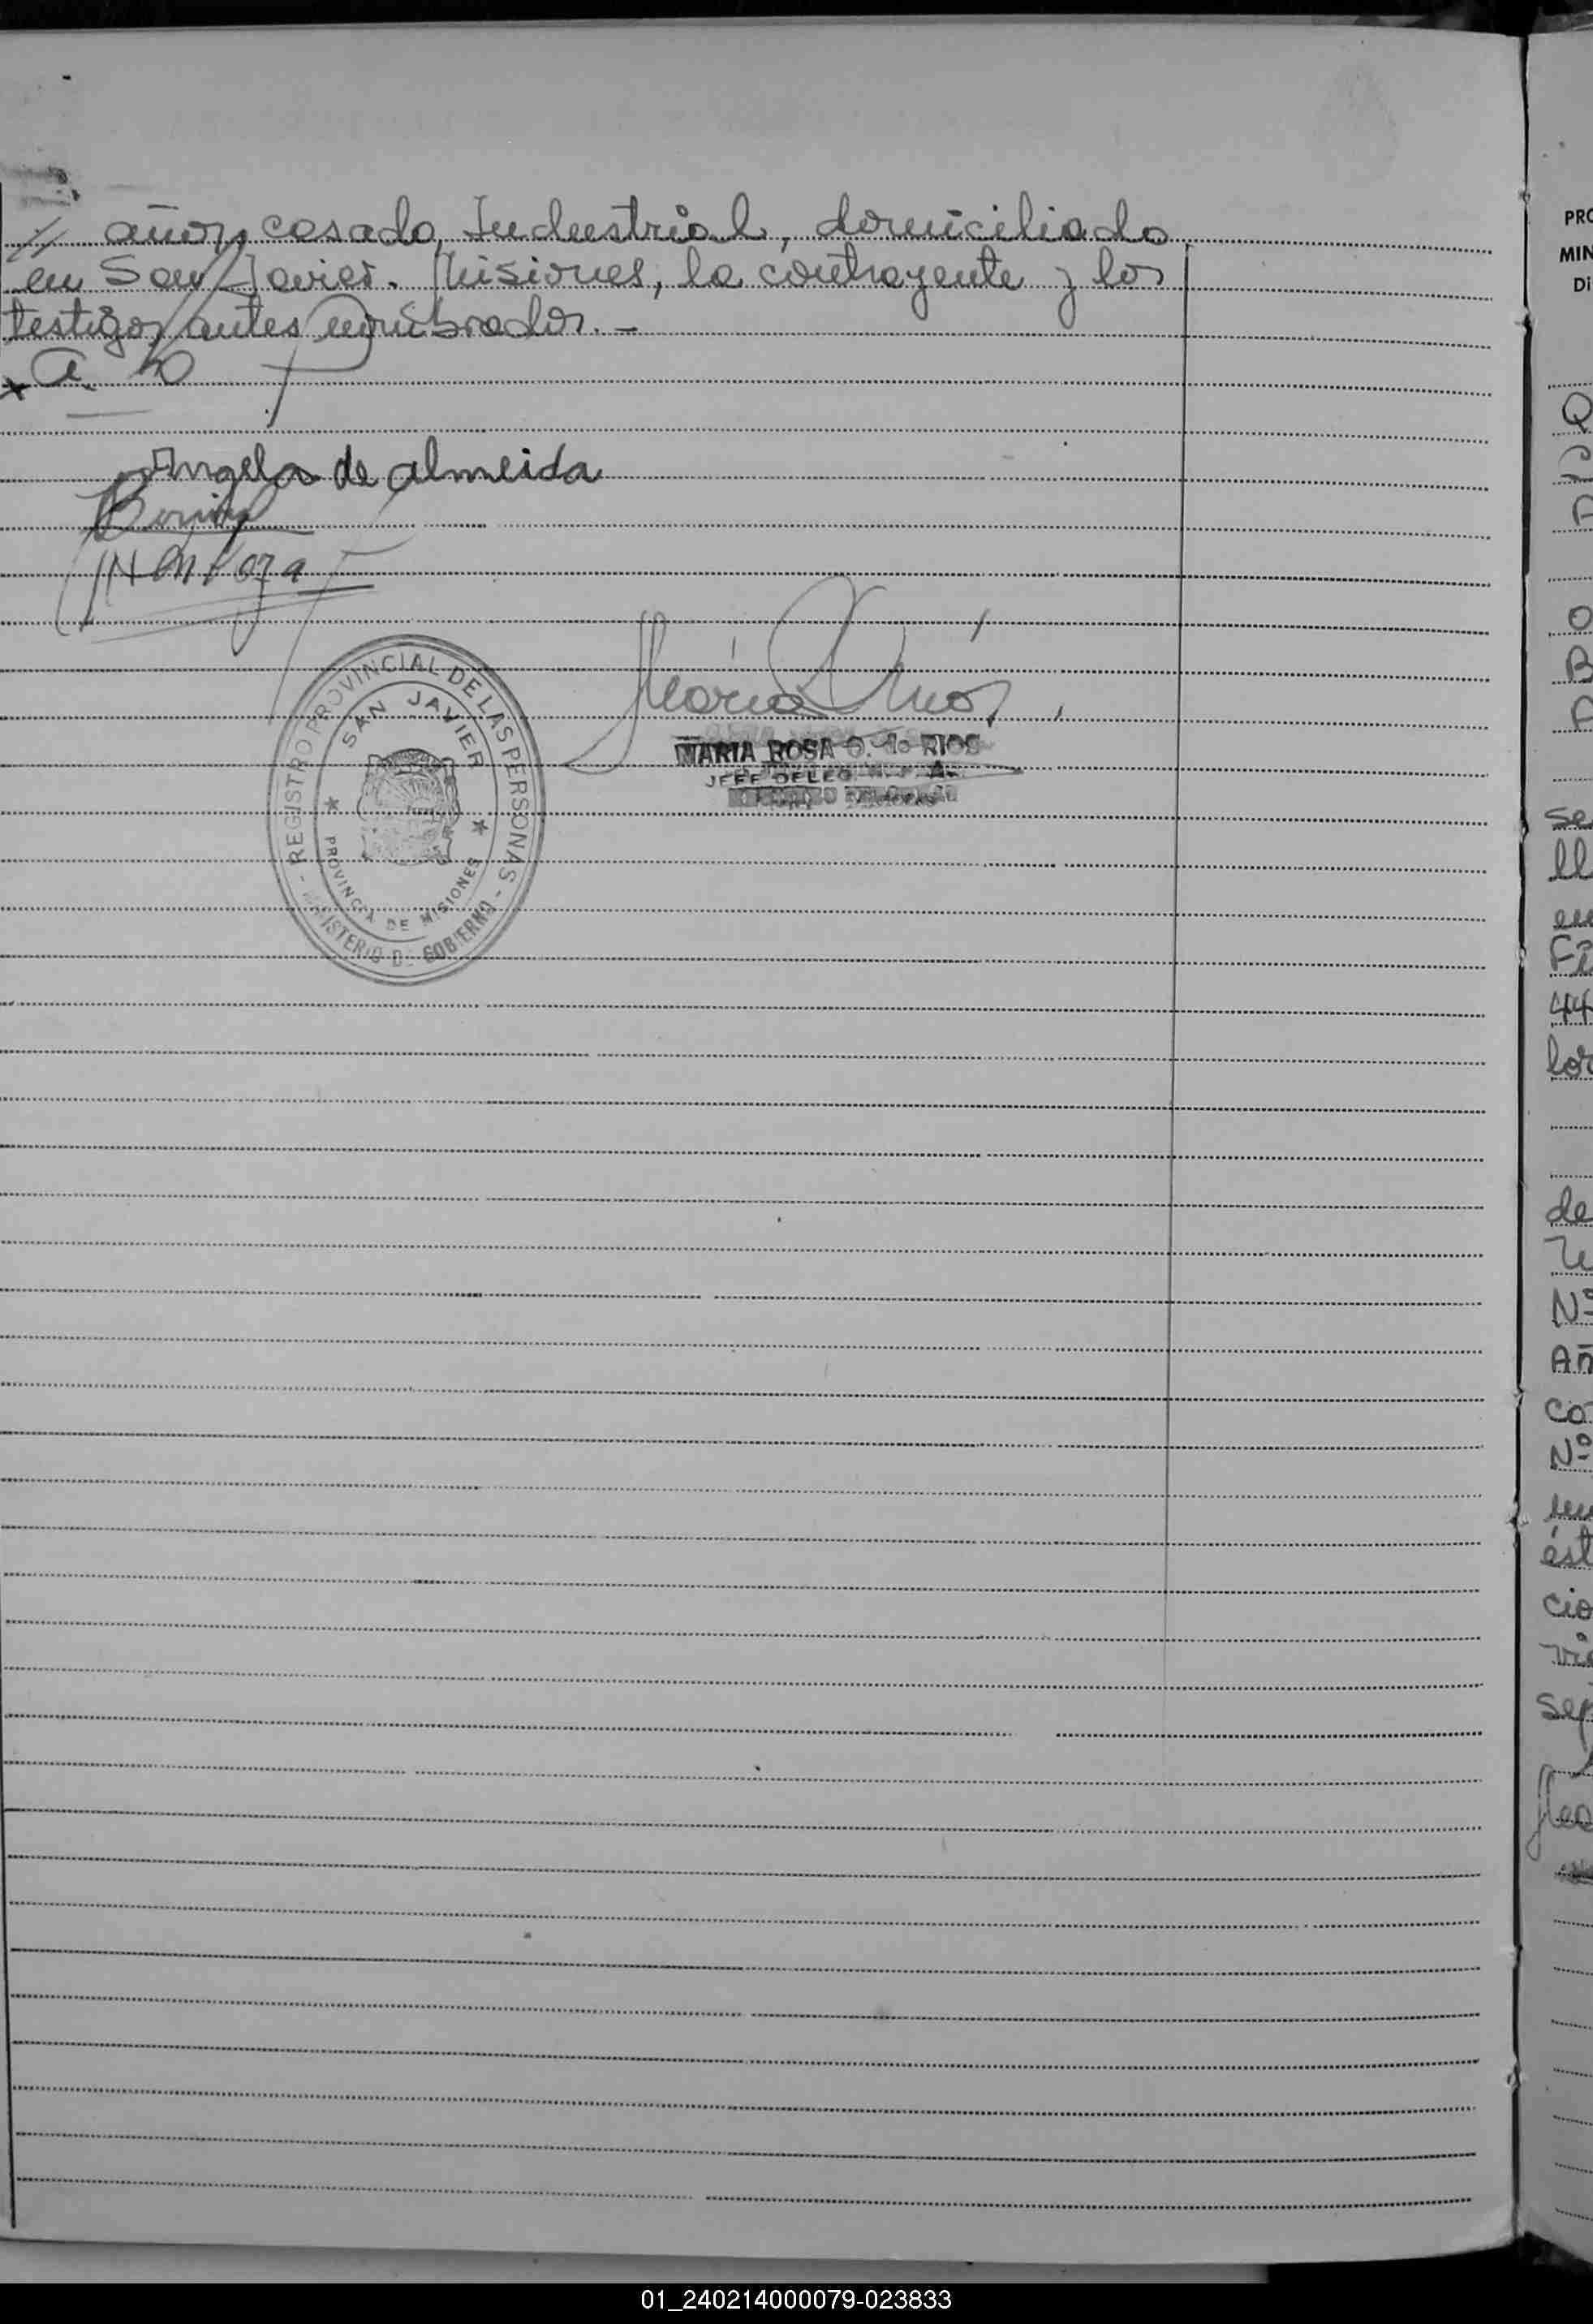 // años, casado, Industrial, domiciliado
en San Javier. Misiones, la contrayente y los
testigos antes nombrados. -
Angela de almeida
REGISTRO PROVINCIAL DE LAS PERSONAS
SAN JAVIER
PROVINCIA DE MISIONES
- MINISTERIO DE GOBIERNO -
MARIA ROSA O. de RIOS
JEFE DELEG.
PRO
MIN
Di
Q
A
O
B
A
se
ll
en
Fi
44
los
de
Nº
Añ
co
Nº
ést
cio
vi
sep
01_240214000079-023833